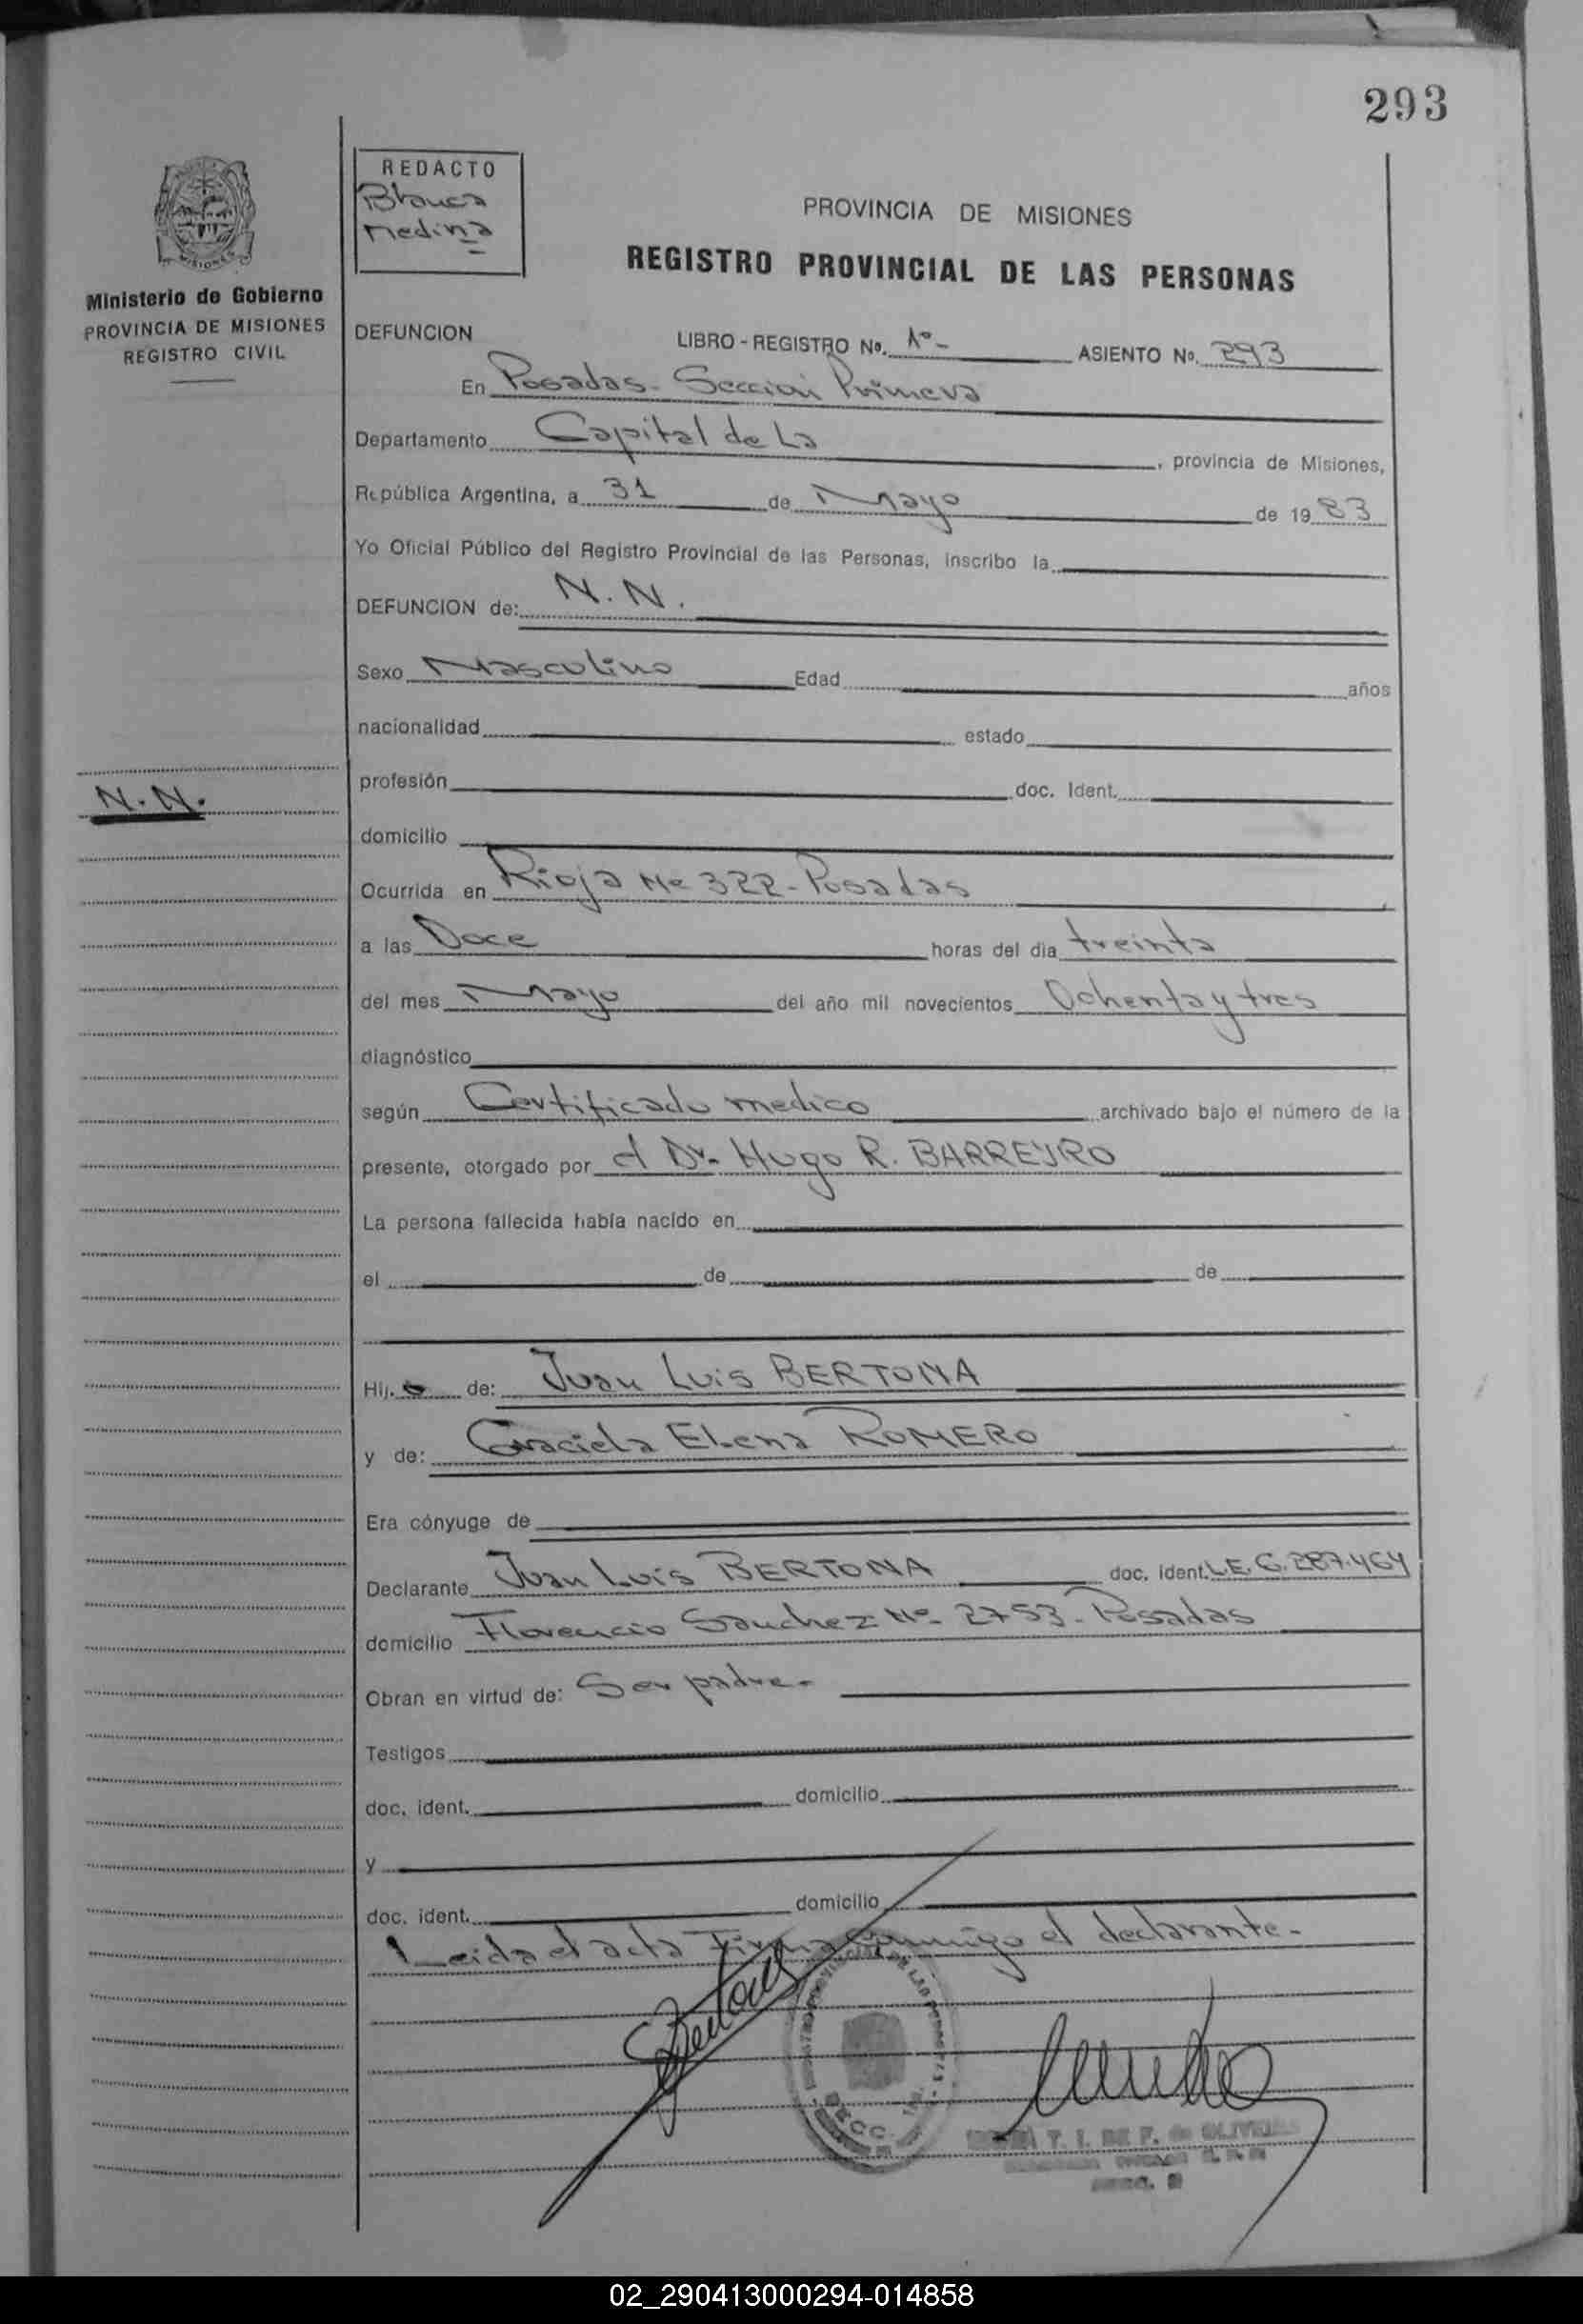 293
REDACTO
Blanca
Medina
PROVINCIA DE MISIONES
REGISTRO PROVINCIAL DE LAS PERSONAS
MISIONES
Ministerio de Gobierno
PROVINCIA DE MISIONES
REGISTRO CIVIL
DEFUNCION LIBRO - REGISTRO No. 1º- ASIENTO No. 293
En Posadas - Seccion Primera
Departamento Capital de La, provincia de Misiones,
República Argentina, a 31 de Mayo de 1983
Yo Oficial Público del Registro Provincial de las Personas, inscribo la
DEFUNCION de: N.N.
Sexo Masculino Edad años
nacionalidad estado
profesión doc. Ident.
N.N.
domicilio
Ocurrida en Rioja Nº 322 - Posadas
a las Doce horas del día treinta
del mes Mayo del año mil novecientos Ochenta y tres
diagnóstico
según Certificado medico archivado bajo el número de la
presente, otorgado por el Dr. Hugo R. BARREYRO
La persona fallecida había nacido en
el de de
Hij.o de: Juan Luis BERTONA
y de: Graciela Elena ROMERO
Era cónyuge de
Declarante Juan Luis BERTONA doc. ident. L.E. 6.287.464
domicilio Florencio Sanchez Nº 2753 - Posadas
Obran en virtud de: Ser padre.-
Testigos
doc. ident. domicilio
y
doc. ident. domicilio
Leida el acta Firma conmigo el declarante.-
Bertona
SECC.
T. I. DE F. de OLIVEIRA
02_290413000294-014858